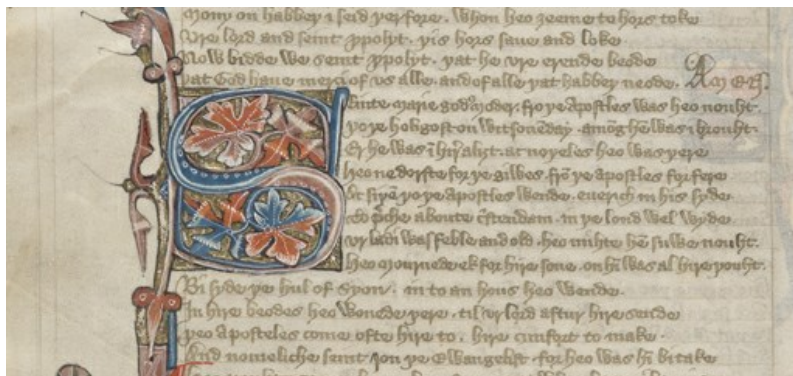 Mony on habbeþ i seid þerfore. Whon heo ȝeeme to hors toke
Vre lord and seint ypolyt. þis hors saue and loke
Now bidde we seint ypolyt. þat he vre erende beode
Þat God haue merci of vs alle. and of alle þat habbeþ neode. Amen.
Seinte Marie godes moder. fro þe Apostles was heo nouht.
þo þe holigost on Witsoneday. among hem was i brouht.
heo ne dorste for þe giwes. from þe apostles for fere
þe apostles wende. euerich in his syde
preche aboute cristendam. in þe lond wel wyde
Vr ladi was feble and old. heo mihte hem suwe nouht.
Heo mournede ek for hire sone. on him was al hire þouht.
Bi syde þe hul of Syon. in to an hous heo wende.
In hire beodes heo wonede þere. til vr lord aftur hire sende
Þeo aposteles come ofte hire to. hire cumfort to make.
And nomeliche seint Jon þe Ewangelist. for heo was him bitake